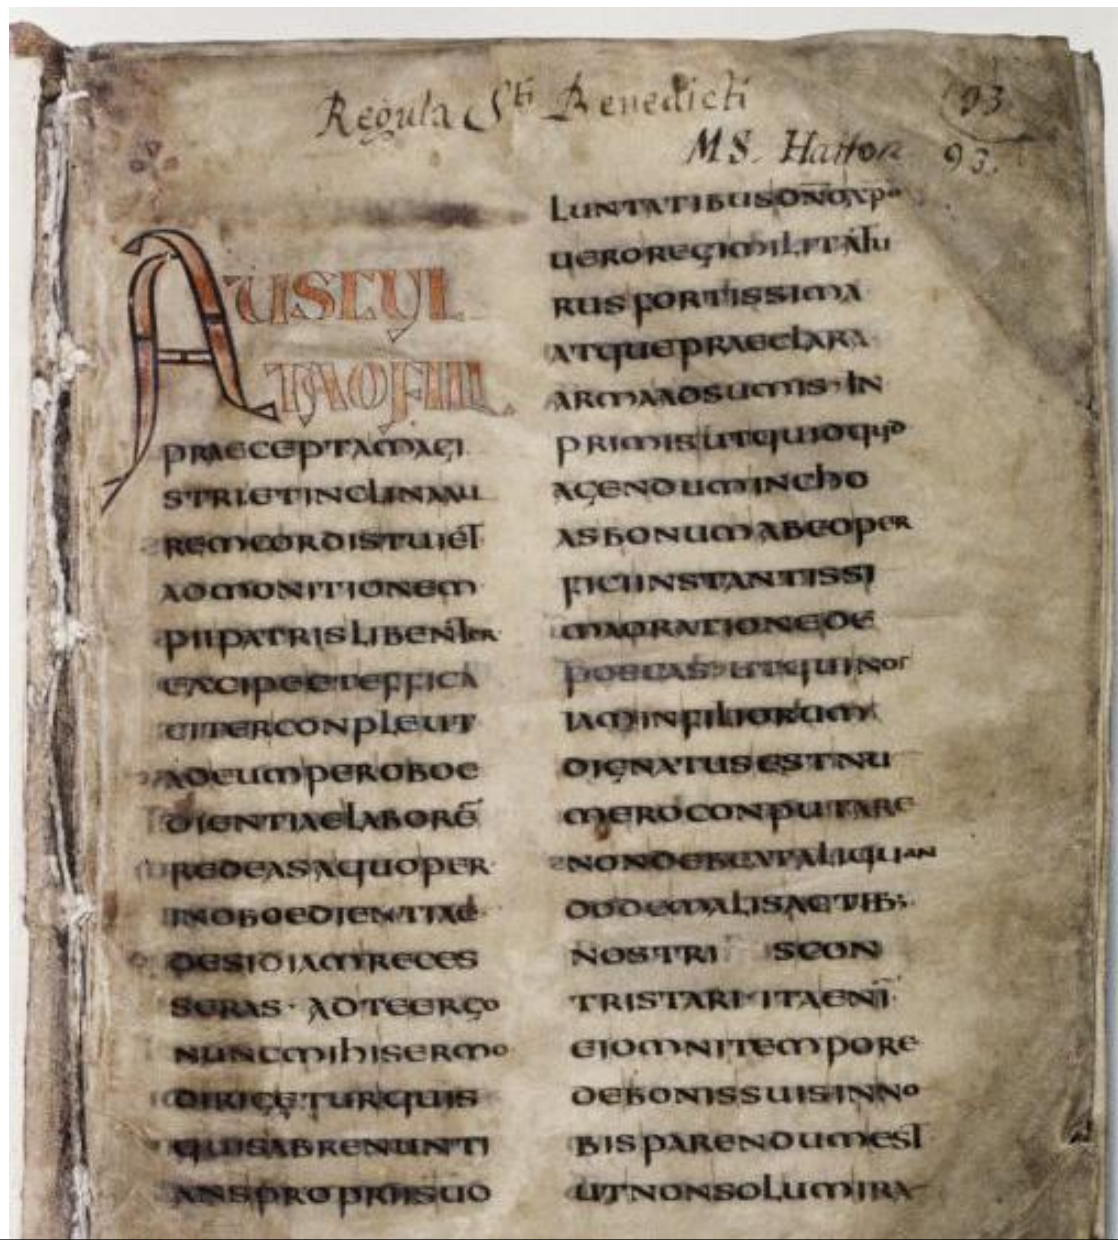 Regula Sti Benedicti
93
MS. Hatton 93.
AUSCUL
TAOFILI
PRAECEPTAMAGI
STRIETINCLINAAU
REMCORDISTUIET
ADMONITIONEM
PIIPATRISLIBENTER
EXCIPEETEFFICA
CITERCONPLEUT
ADEUMPEROBOE
DIENTIAELABORĒ
REDEASAQUOPER
INOBOEDIENTIAE
DESIDIAMRECES
SERAS· ADTEERGO
NUNCMIHISERMO
DIRIGETURQUIS
QUISABRENUNTI
ANSPROPRIISUO
LUNTATIBUSDN̄OXPO
UEROREGIMILITATU
RUSFORTISSIMA
ATQUEPRAECLARA
ARMAADSUMIS· IN
PRIMISUTQUIDQUID
AGENDUMINCHO
ASBONUMABEOPER
FICIINSTANTISSI
MAORATIONEDE
POSCAS· UTQUINOS
IAMINFILIORUM
DIGNATUSESTNU
MEROCONPUTARE
NONDEBEATALIQUAN
DODEMALISACTIB;
NOSTRI SCON
TRISTARI· ITAENĪ
EIOMNITEMPORE
DEBONISSUISINNO
BISPARENDUMEST
UTNONSOLUMIRA